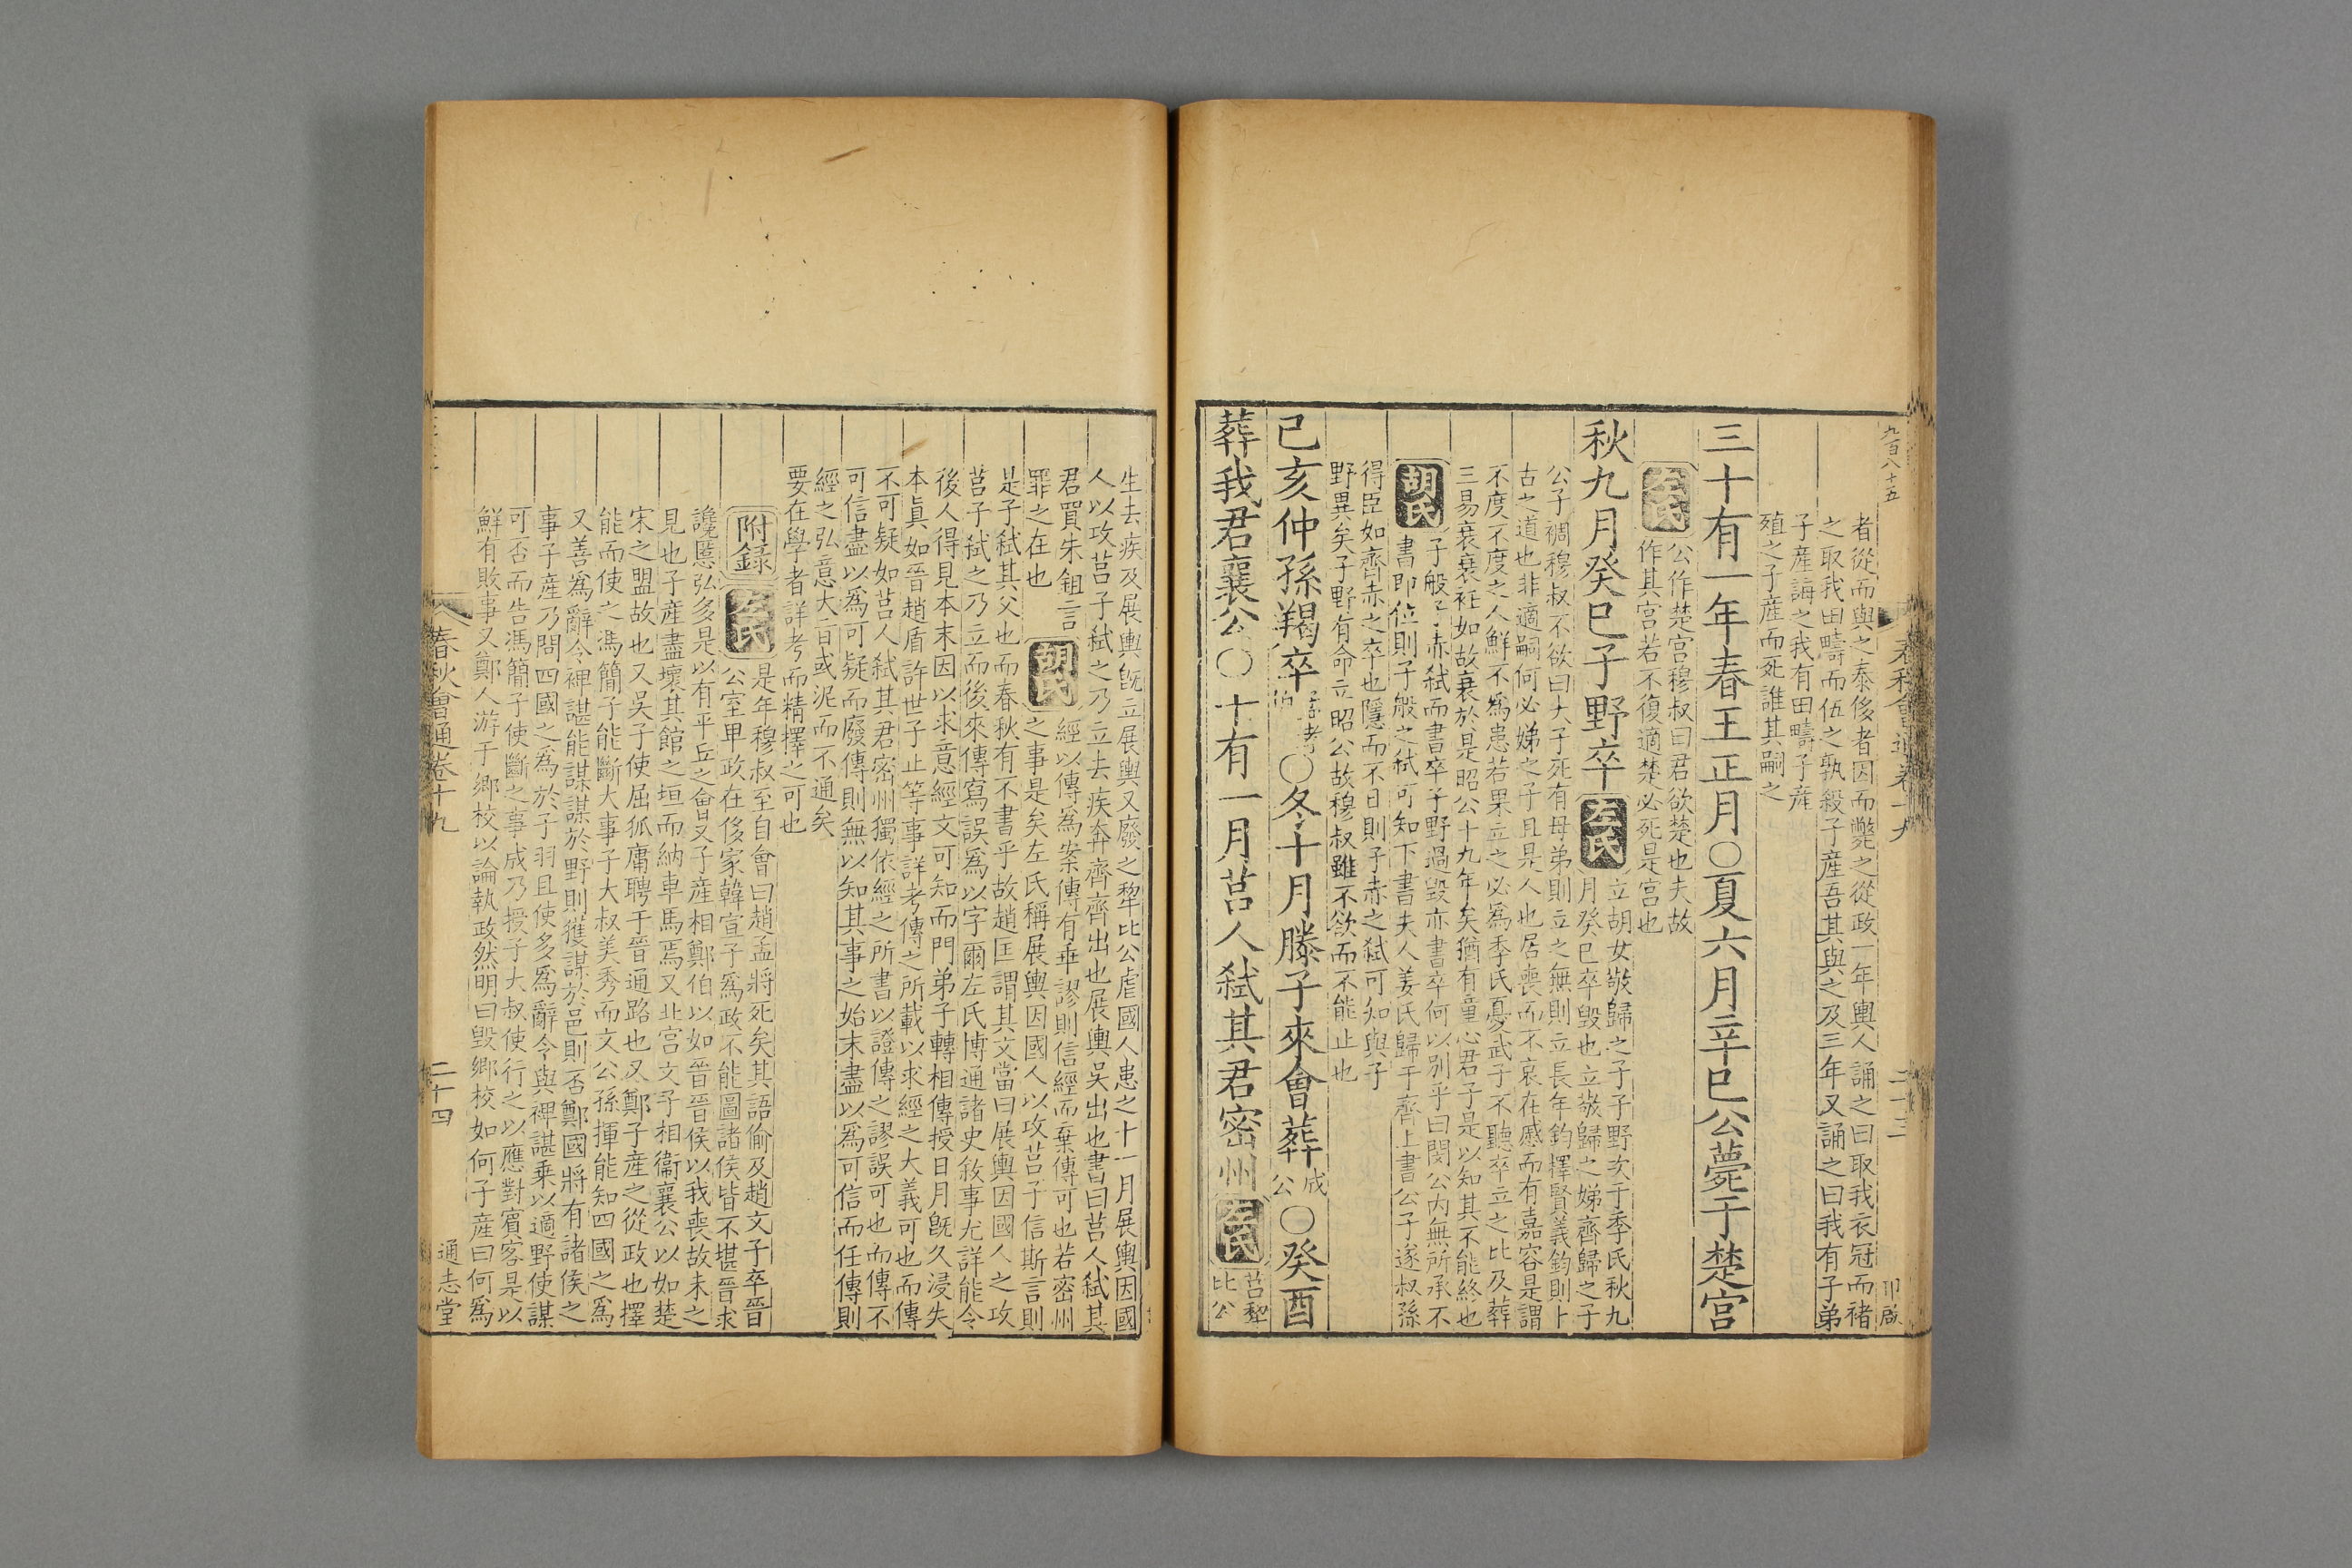 九百八十五
春秋會通卷十九
二十三
者從而與之泰侈者因而斃之從政一年輿人誦之曰取我衣冠而褚
之取我田疇而伍之孰殺子產吾其與之及三年又誦之曰我有子弟
子產誨之我有田疇子產
殖之子產而死誰其嗣之
三十有一年春王正月○夏六月辛巳公薨于楚宮
左氏
公作楚宮穆叔曰君欲楚也夫故
作其宮若不復適楚必死是宮也
秋九月癸巳子野卒
左氏
立胡女敬歸之子子野次于季氏秋九
月癸巳卒毀也立敬歸之娣齊歸之子
公子裯穆叔不欲曰大子死有母弟則立之無則立長年鈞擇賢義鈞則卜
古之道也非適嗣何必娣之子且是人也居喪而不哀在慼而有嘉容是謂
不度不度之人鮮不爲患若果立之必爲季氏憂武子不聽卒立之比及葬
三易衰衰衽如故衰於是昭公十九年矣猶有童心君子是以知其不能終也
胡氏
子般子赤弑而書卒子野過毀亦書卒何以別乎曰閔公內無所承不
書即位則子般之弑可知下書夫人姜氏歸于齊上書公子遂叔孫
得臣如齊赤之卒也隱而不日則子赤之弑可知與子
野異矣子野有命立昭公故穆叔雖不欲而不能止也
己亥仲孫羯卒
孝伯
○冬十月滕子來會葬
成公
○癸酉
葬我君襄公○十有一月莒人弑其君密州
左氏
莒犂
比公
生去疾及展輿既立展輿又廢之犂比公虐國人患之十一月展輿因國
人以攻莒子弑之乃立去疾奔齊齊出也展輿吳出也書曰莒人弑其
君買朱鉏言
罪之在也
胡氏
經以傳爲案傳有乖謬則信經而棄傳可也若密州
之事是矣左氏稱展輿因國人以攻莒子信斯言則
是子弑其父也而春秋有不書乎故趙匡謂其文當曰展輿因國人之攻
莒子弑之乃立而後來傳寫誤爲以字爾左氏博通諸史敘事尤詳能令
後人得見本末因以求意經文可知而門弟子轉相傳授日月旣久浸失
本眞如晉趙盾許世子止等事詳考傳之所載以求經之大義可也而傳
不可疑如莒人弑其君密州獨依經之所書以證傳之謬誤可也而傳不
可信盡以爲可疑而廢傳則無以知其事之始末盡以爲可信而任傳則
經之弘意大旨或泥而不通矣
要在學者詳考而精擇之可也
附錄
左氏
是年穆叔至自會曰趙孟將死矣其語偷及趙文子卒晉
公室卑政在侈家韓宣子爲政不能圖諸侯皆不堪晉求
讒慝弘多是以有平丘之會又子產相鄭伯以如晉晉侯以我喪故未之
見也子產盡壞其館之垣而納車馬焉又北宮文子相衞襄公以如楚
宋之盟故也又吳子使屈狐庸聘于晉通路也又鄭子產之從政也擇
能而使之馮簡子能斷大事子大叔美秀而文公孫揮能知四國之爲
又善爲辭令裨諶能謀謀於野則獲謀於邑則否鄭國將有諸侯之
事子產乃問四國之爲於子羽且使多爲辭令與裨諶乗以適野使謀
可否而告馮簡子使斷之事成乃授子大叔使行之以應對賓客是以
鮮有敗事又鄭人游于鄉校以論執政然明曰毀鄉校如何子產曰何爲
春秋會通卷十九
二十四
通志堂